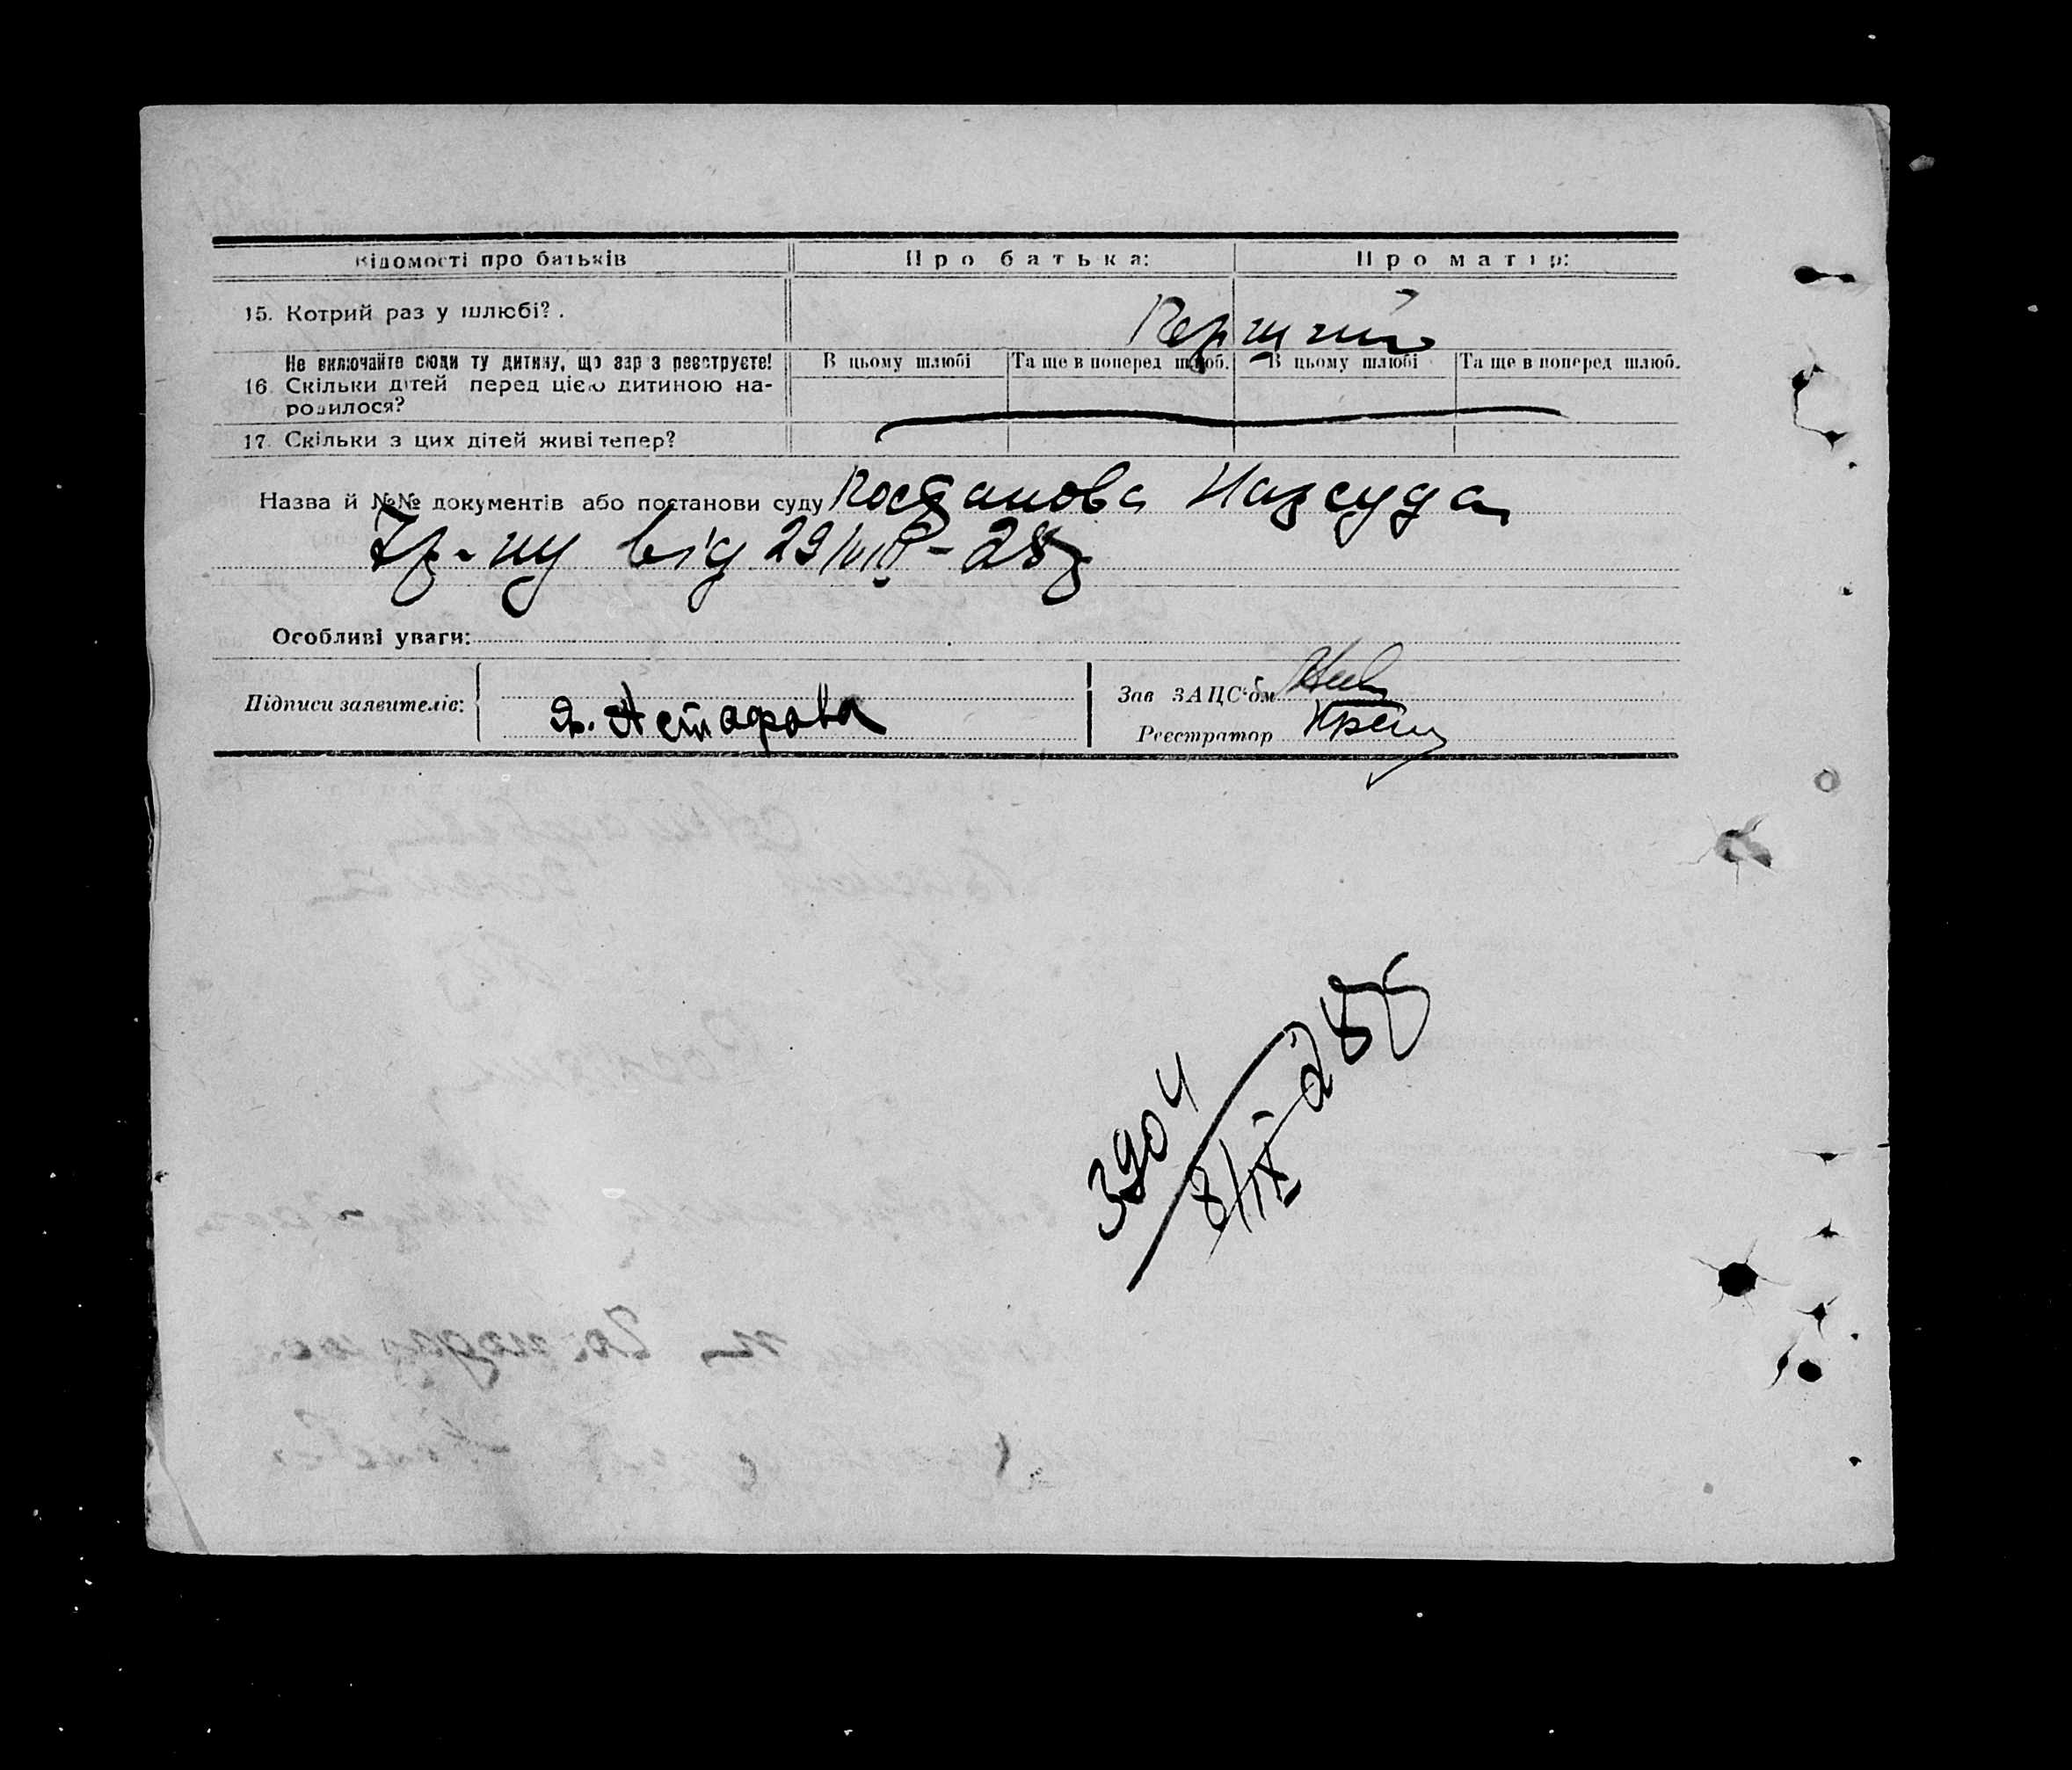 Відомості про батьків Про батька: Про матір:
15. Котрий раз у шлюбі?. Перший
Не включайте сюди ту дитину, що зараз реєструєте! В цьому шлюбі Та ще в поперед шлюб. В цьому шлюбі Та ще в поперед шлюб.
16. Скільки дітей перед цією дитиною на-
родилося?
17. Скільки з цих дітей живі тепер?
Назва й №№ документів або постанови суду Постанова Нарсуда
7 р-ну від 29/VIII-28 р
Особливі уваги:
Підписи заявителів: Я. Астафова
Зав ЗАЦС'ом
Реєстратор
3904
8/IX-28